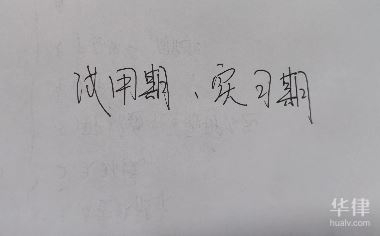 试用期、实习期
华律
hualv.com